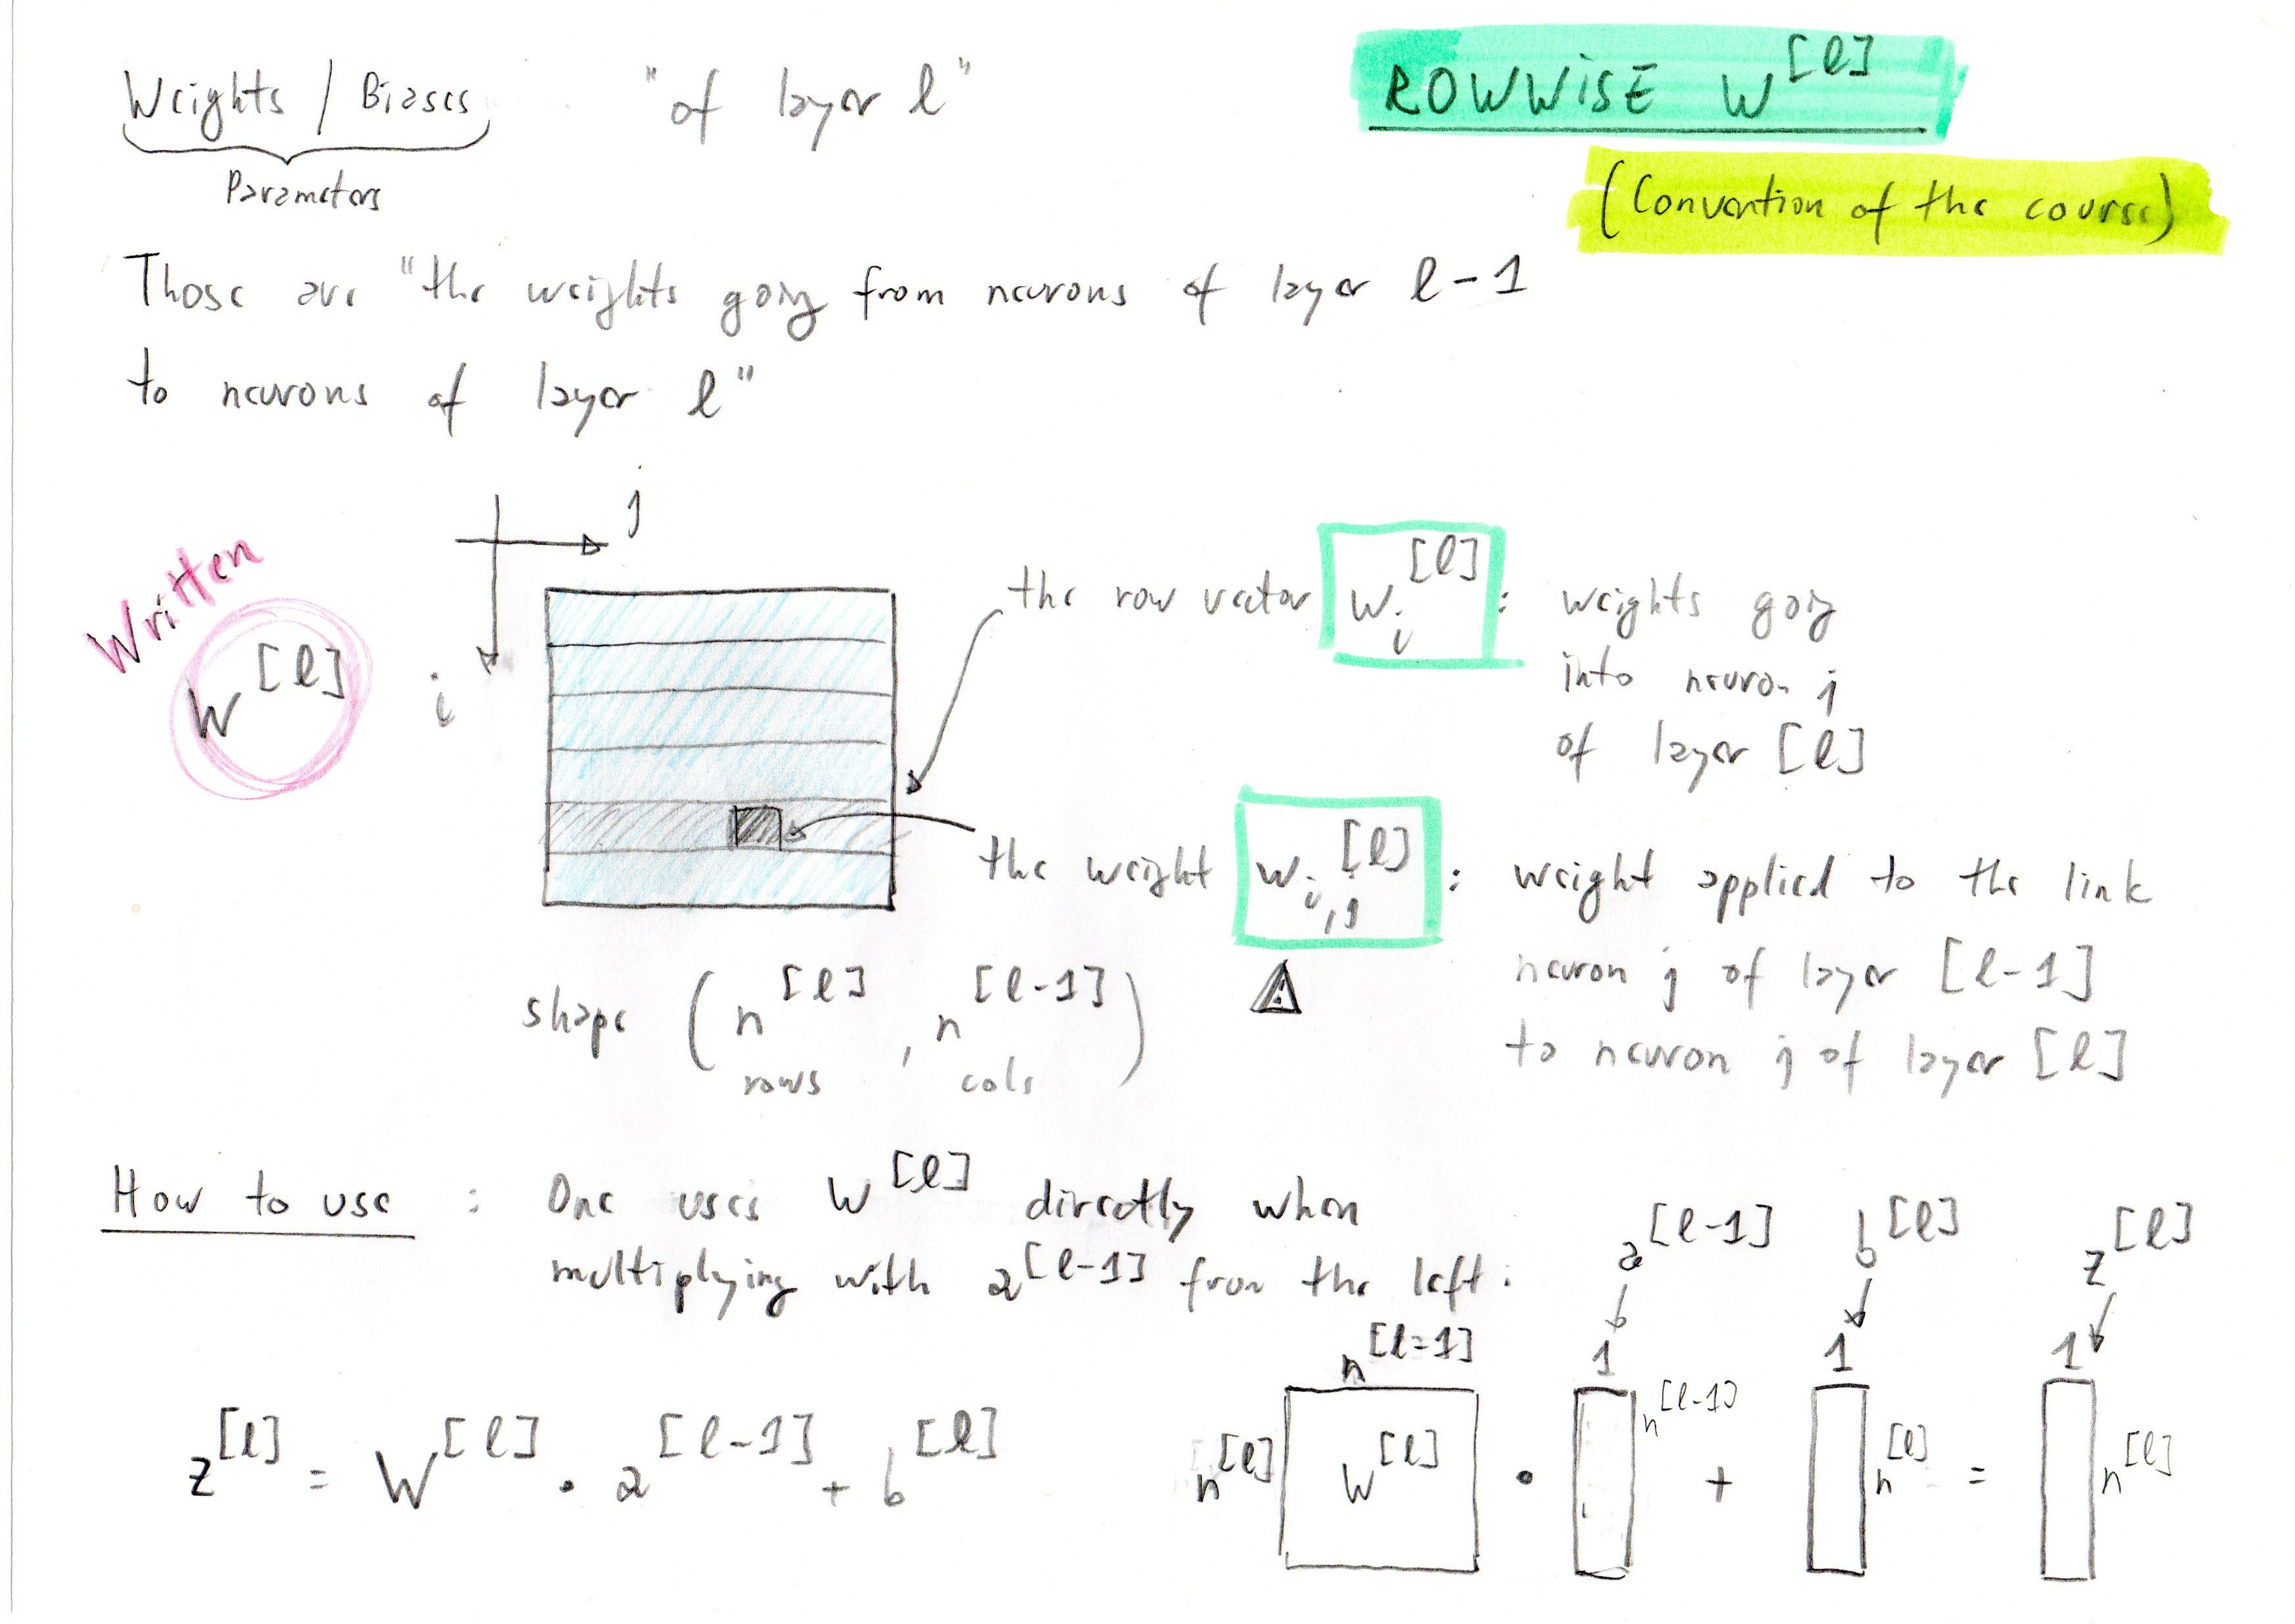 Weights / Biases "of layer l"
Parameters
ROWWISE W^[l]
(Convention of the course)
Those are "the weights going from neurons of layer l-1
to neurons of layer l"
Written
W^[l]
j
i
the row vector w_i^[l] : weights going
into neuron j
of layer [l]
the weight w_i,j^[l] : weight applied to the link
neuron j of layer [l-1]
to neuron j of layer [l]
shape (n^[l], n^[l-1])
rows cols
How to use : One uses W^[l] directly when
multiplying with a^[l-1] from the left.
z^[l] = W^[l] · a^[l-1] + b^[l]
a^[l-1] b^[l] z^[l]
n^[l-1] 1 1 1
n^[l] W^[l] · n^[l-1] + n^[l] = n^[l]